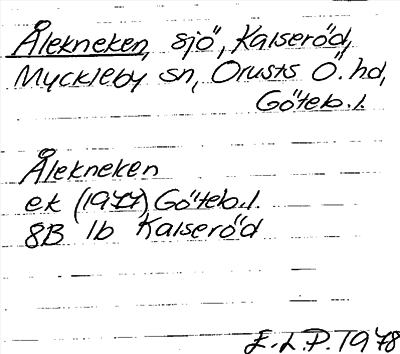 Ålekneken, sjö, Kalseröd,
Myckleby sn, Orusts Ö. hd,
Göteb. l.
Ålekneken
ek (1977) Göteb. l.
8B 1b Kalseröd
E.L.P. 1978